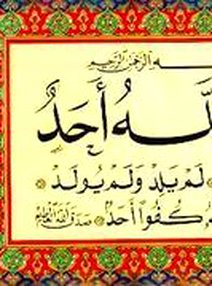 ـه الرَّحْمٰنِ الرَّحِيمِ
لَّهُ أَحَدٌ
لَمْ يَلِدْ وَلَمْ يُولَدْ
كُفُوًا أَحَدٌ صَدَقَ اللهُ العَظِيم